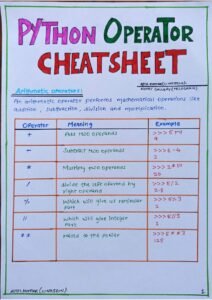 PYTHON OPERATOR
CHEATSHEET
Arithmetic operators:
An arithmetic operator performs mathematical operations like
addition, subtraction, division and multiplication.
Operator Meaning Example
+ Add two operands >>> 5+4
9
- Subtract two operands
* Multiply two operands
50
/ Divide the left operand by >>> 5/2
right operand 2.5
% Which will give us reminder >>> 5%3
part 2
// Which will give integer >>> 5//3
part 1
** raised to the power >>> 5**3
125
1